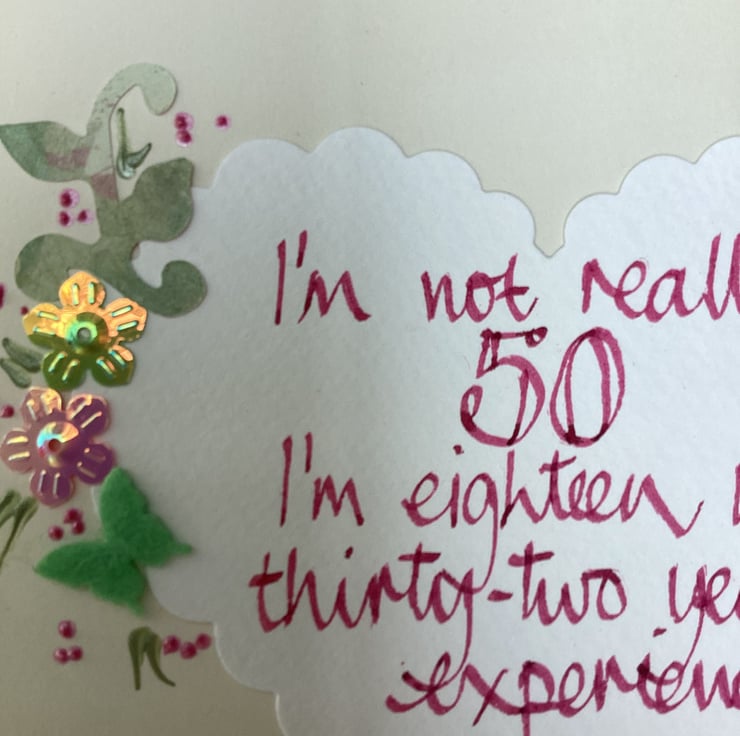 I'm not reall
50
I'm eighteen
thirty-two ye
experien